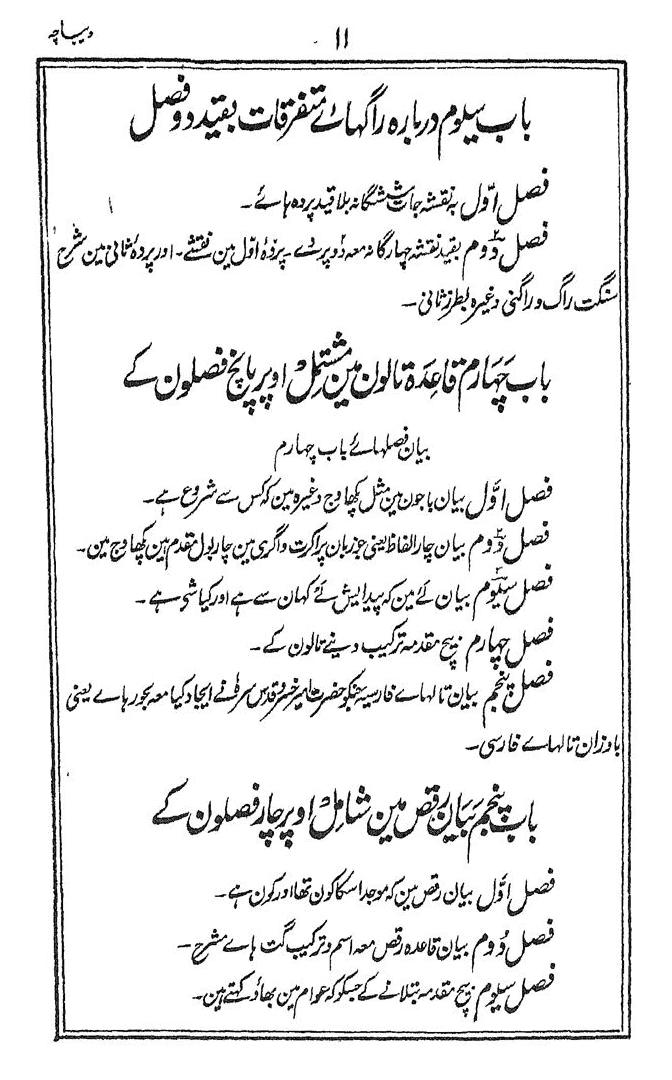 دیباچہ
۱۱
باب سیلوم دربارہ راگہائے متفرقات بقید دو فصل
فصل اوّل بہ نقشہ جات ششگانہ بلا قید پردہ ہائے۔
فصل دُوم بقید نقشہ چہارگانہ معہ دُو پردے۔ پردۂ اوّل مین نقشے۔ اور پردہ ثانی مین شرح
سنگت راگ و راگنی وغیرہ بطرز ثانی۔
باب چہارم قاعدہ تالون مین مشتمل اوپر پانچ فصلون کے
بیان فصلہائے باب چہارم
فصل اوّل بیان باجون مین مثل پکھاوج وغیرہ مین کہ کس سے شروع ہے۔
فصل دُوم بیان چار الفاظ یعنی جو زبان پراکرت و اگری مین چار بول مقدم ہین پکھاوج مین۔
فصل سیلوم بیان لَے مین کہ پیدایش لَے کہان سے ہے اور کیا شی ہے۔
فصل چہارم بیچ مقدمہ ترکیب دینے تالون کے۔
فصل پنجم بیان تالہاے فارسیہ جنکو حضرت امیر خسرو قدس سرہ نے ایجاد کیا معہ بحور ہاے یعنی
باوزان تالہاے فارسی۔
باب پنجم بیان رقص مین شامل اوپر چار فصلون کے
فصل اوّل بیان رقص مین کہ موجد اسکا کون تھا اور کون ہے۔
فصل دُوم بیان قاعدہ رقص معہ اسم و ترکیب گت ہاے مشرح۔
فصل سیلوم بیچ مقدمہ بتلانے کے جسکو کہ عوام مین بھاؤ کہتے ہین۔